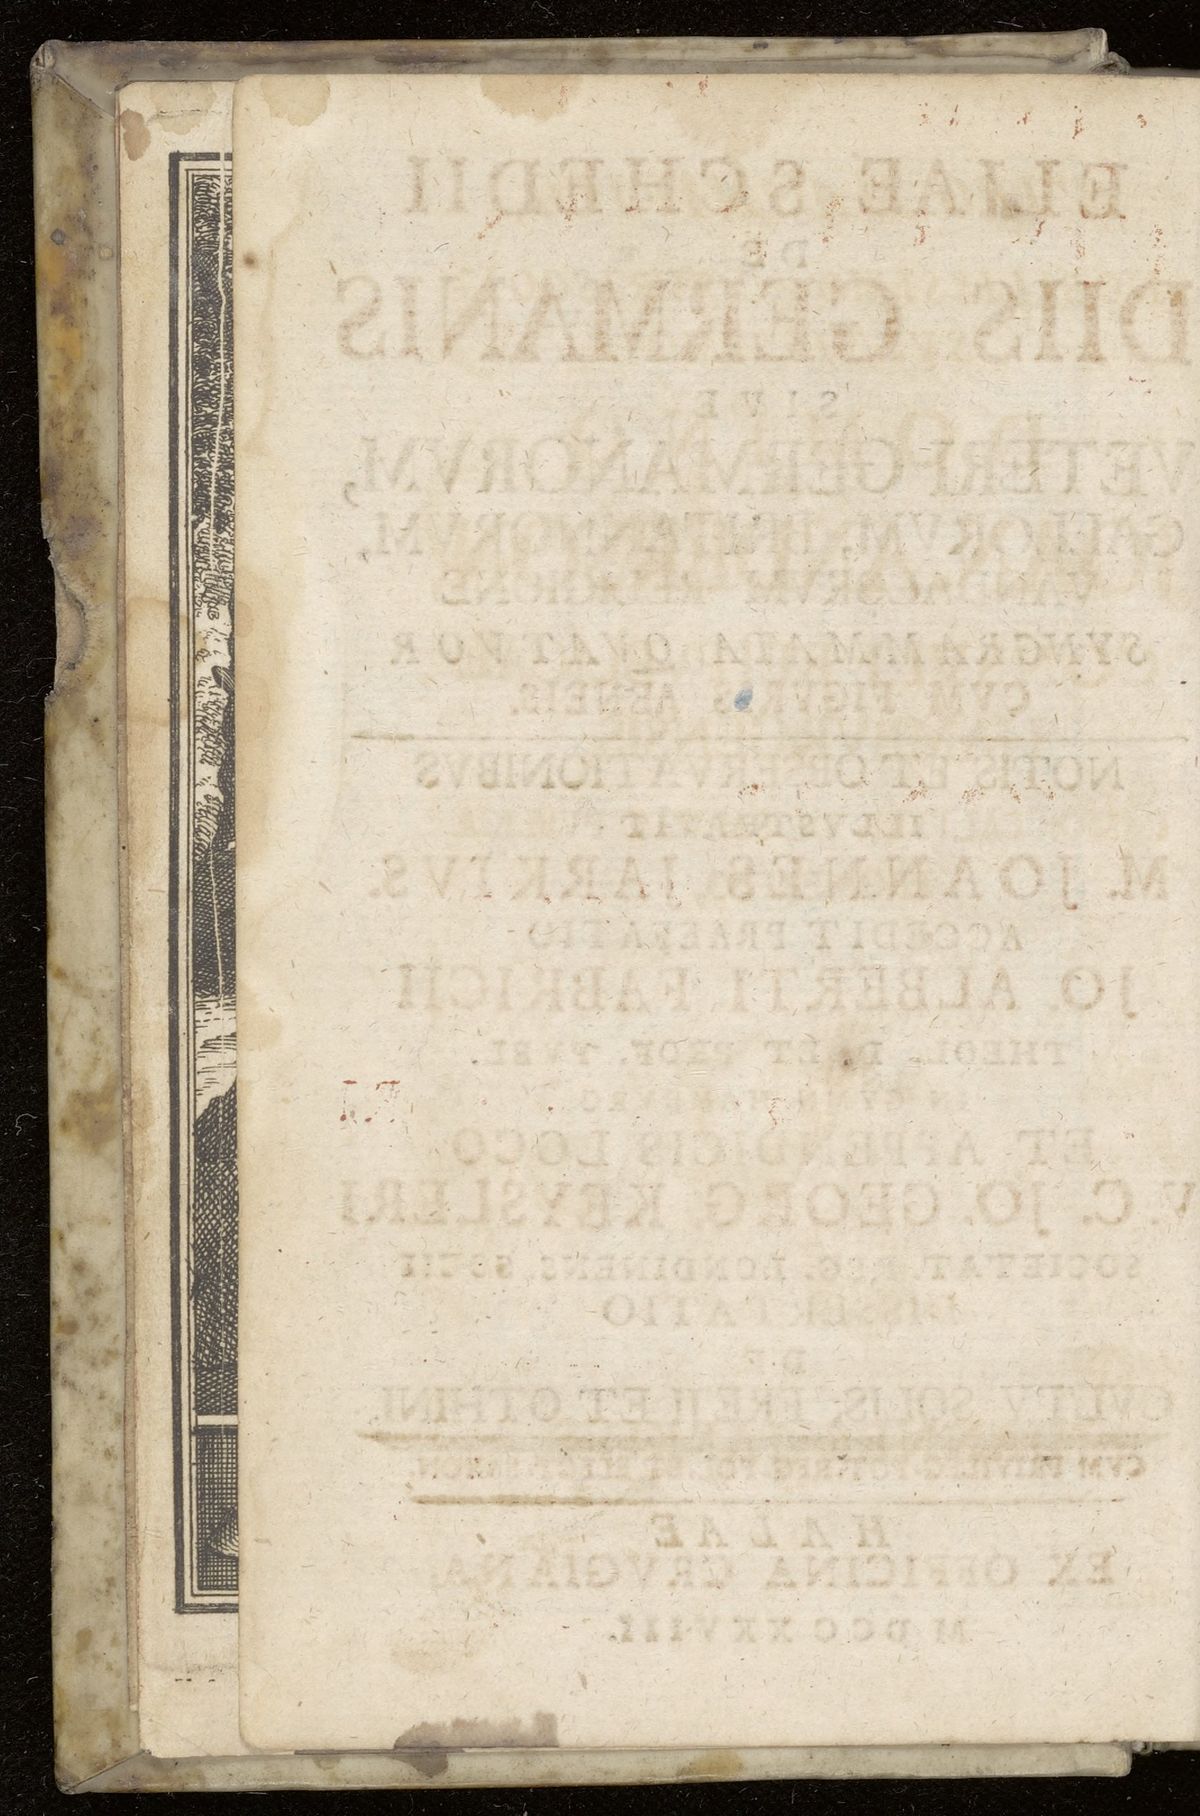 ELIAE SCHEDII
DE
DIIS GERMANIS
SIVE
VETERI GERMANORVM,
GALLORVM, BRITANNORVM,
VANDALORVM RELIGIONE
SYNGRAMMATA QVATVOR
CVM FIGVRIS AENEIS.
NOTIS ET OBSERVATIONIBVS
ILLVSTRAVIT
M. JOANNES JARKIVS.
ACCEDIT PRAEFATIO
JO. ALBERTI FABRICII
THEOL. D. ET PROF. PVBL.
IN GYMN. HAMBVRG.
ET APPENDICIS LOCO
V. C. JO. GEORG. KEYSLERI
SOCIETAT. REG. LONDINENS. SOCII
DISSERTATIO
DE
CVLTV SOLIS, FREJI ET OTHINI.
CVM PRIVILEG. POT. REG. POL. ET ELECT. SAXON.
HALAE
EX OFFICINA CRVGIANA.
MDCCXXVIII.